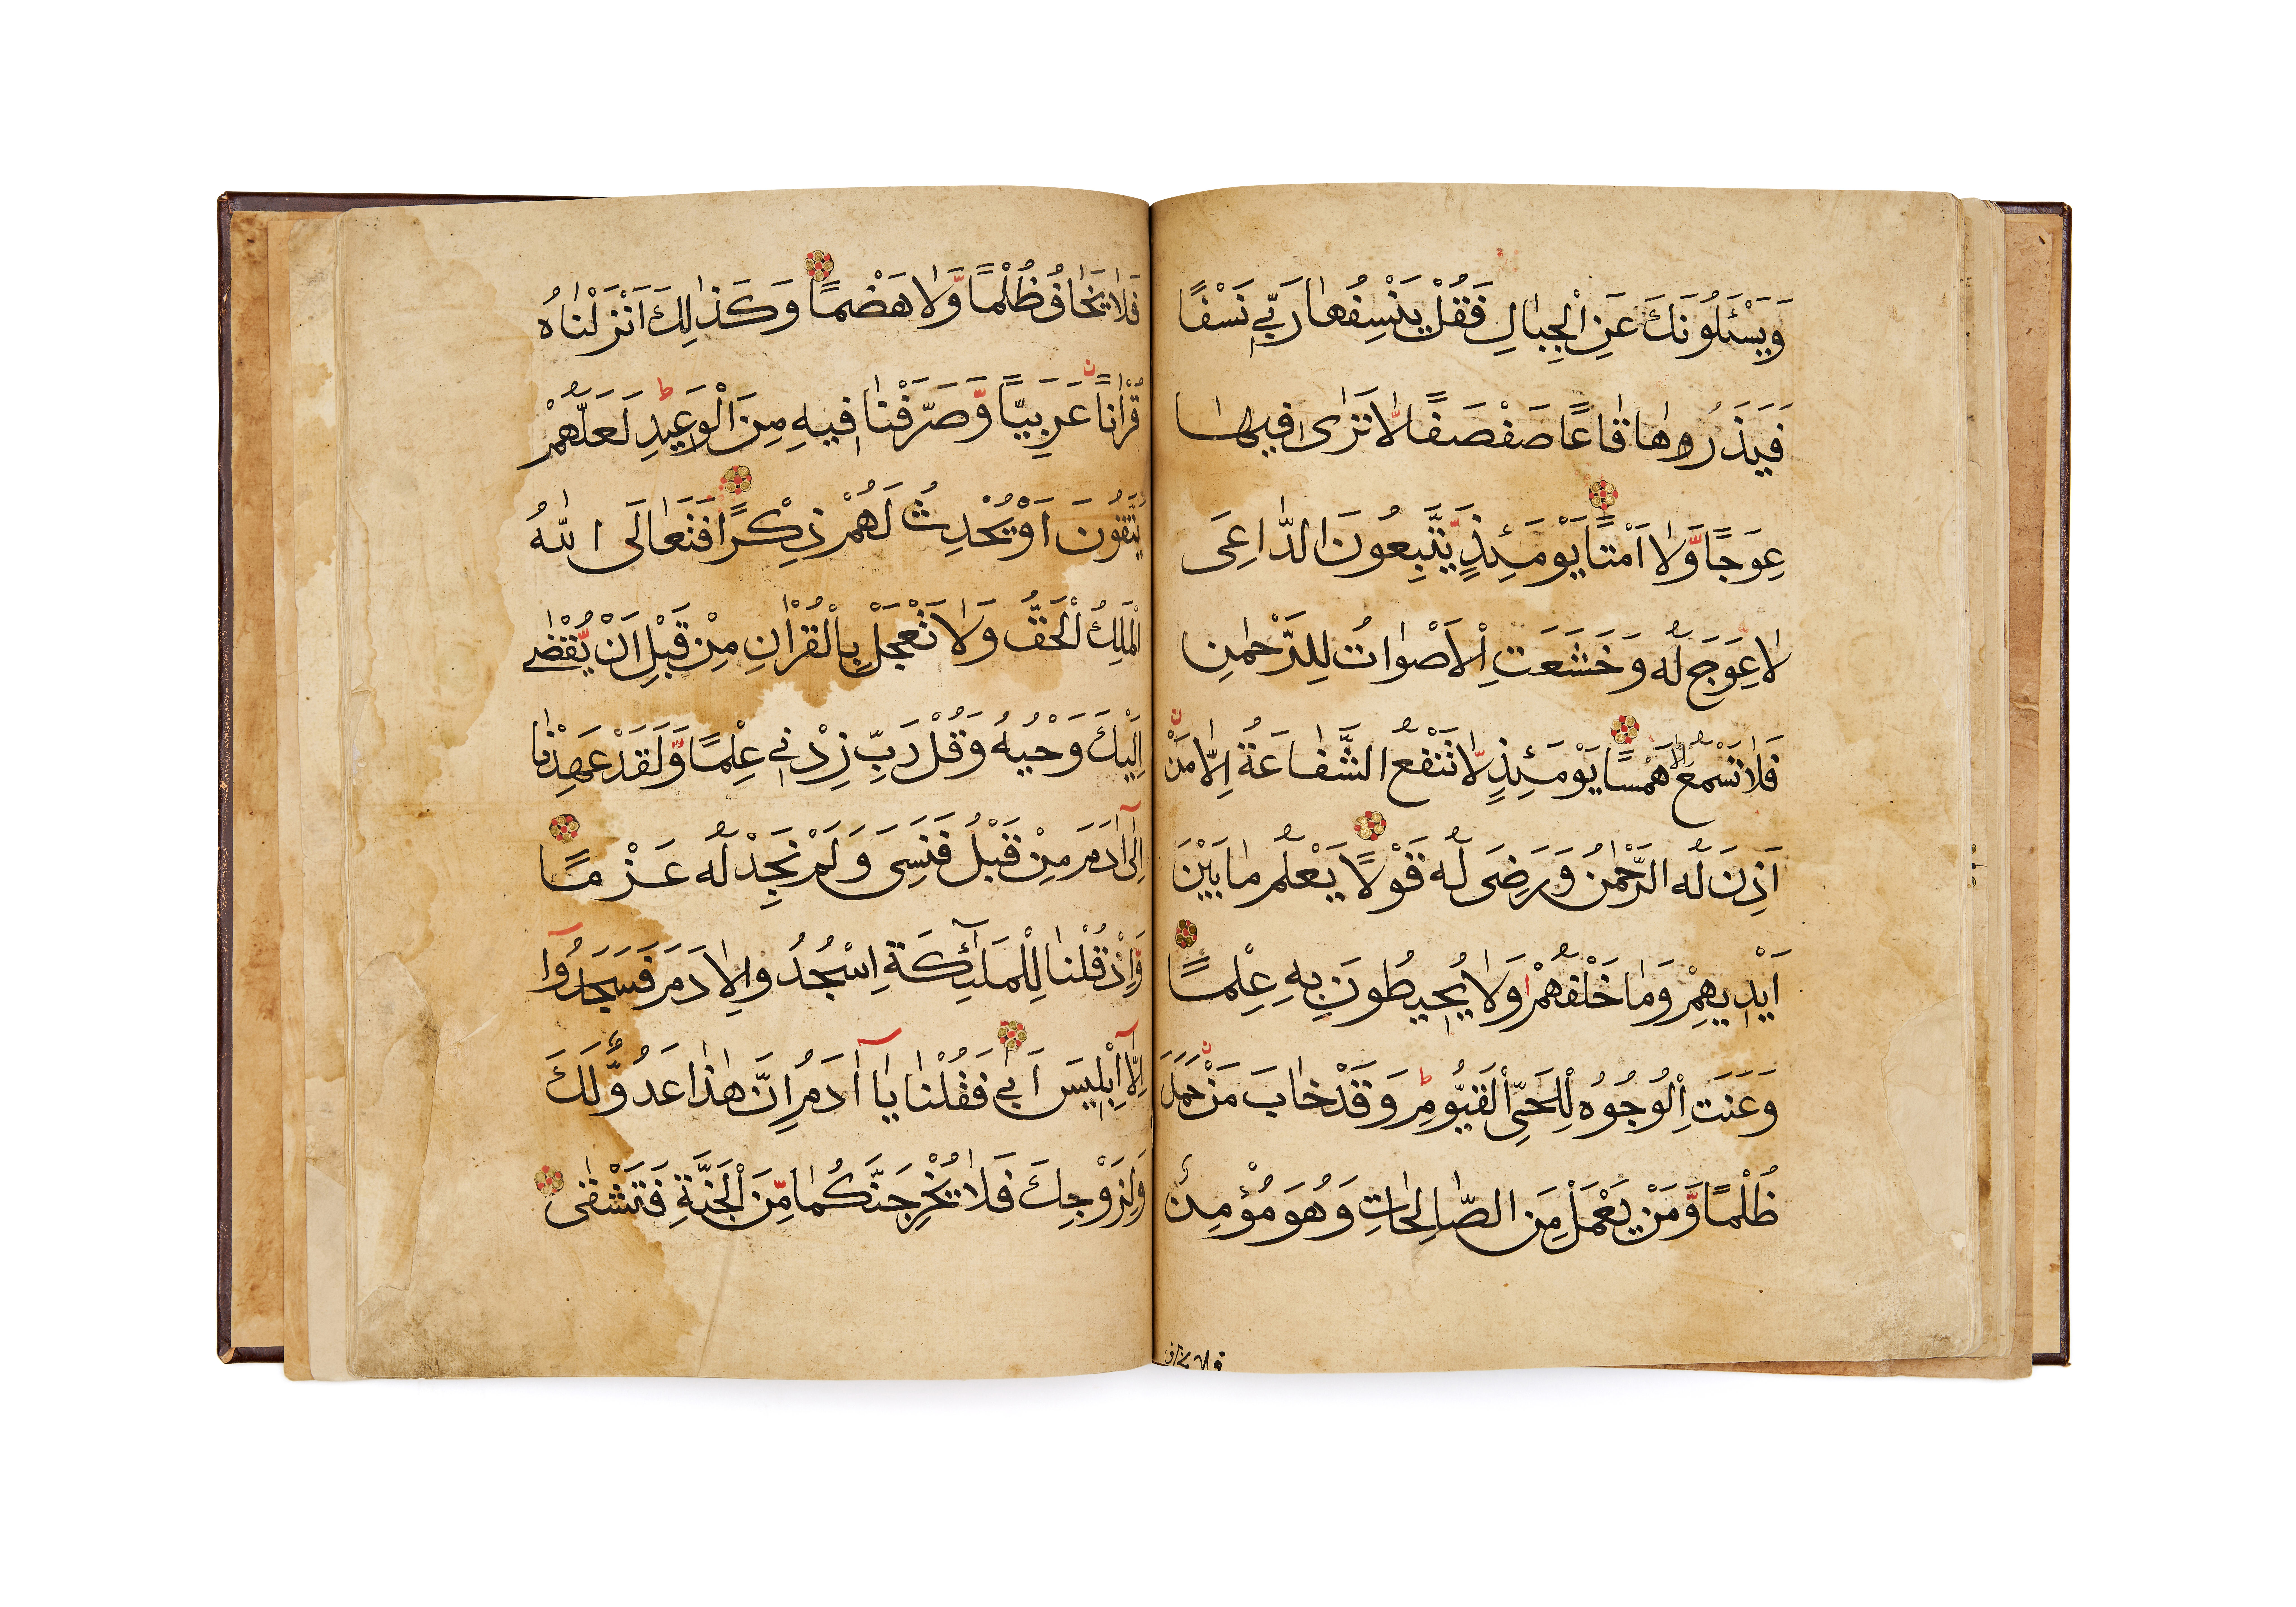 وَيَسْـَٔلُونَكَ عَنِ الْجِبَالِ فَقُلْ يَنْسِفُهَا رَبِّي نَسْفًا
فَيَذَرُهَا قَاعًا صَفْصَفًا لَّا تَرَى فِيهَا
عِوَجًا وَّلَا أَمْتًا يَوْمَئِذٍ يَّتَّبِعُونَ الدَّاعِيَ
لَا عِوَجَ لَهُ وَخَشَعَتِ الْأَصْوَاتُ لِلرَّحْمٰنِ
فَلَا تَسْمَعُ إِلَّا هَمْسًا يَوْمَئِذٍ لَّا تَنْفَعُ الشَّفَاعَةُ إِلَّا مَنْ
أَذِنَ لَهُ الرَّحْمٰنُ وَرَضِيَ لَهُ قَوْلًا يَعْلَمُ مَا بَيْنَ
أَيْدِيهِمْ وَمَا خَلْفَهُمْ وَلَا يُحِيطُونَ بِهِ عِلْمًا
وَعَنَتِ الْوُجُوهُ لِلْحَيِّ الْقَيُّومِ وَقَدْ خَابَ مَنْ حَمَلَ
ظُلْمًا وَّمَنْ يَعْمَلْ مِنَ الصَّالِحَاتِ وَهُوَ مُؤْمِنٌ
فلا يخاف
فَلَا يَخَافُ ظُلْمًا وَّلَا هَضْمًا وَكَذَالِكَ اَنْزَلْنَاهُ
قُرْاٰنًا عَرَبِيًّا وَّصَرَّفْنَا فِيهِ مِنَ الْوَعِيدِ لَعَلَّهُمْ
يَتَّقُونَ اَوْ يُحْدِثُ لَهُمْ ذِكْرًا فَتَعَالَى اللّٰهُ
الْمَلِكُ الْحَقُّ وَلَا تَعْجَلْ بِالْقُرْاٰنِ مِنْ قَبْلِ اَنْ يُّقْضٰى
اِلَيْكَ وَحْيُهُ وَقُلْ رَبِّ زِدْنِي عِلْمًا وَّلَقَدْ عَهِدْنَا
اِلٰٓى اٰدَمَ مِنْ قَبْلُ فَنَسِيَ وَلَمْ نَجِدْ لَهُ عَزْمًا
وَاِذْ قُلْنَا لِلْمَلٰٓئِكَةِ اسْجُدُوا لِاٰدَمَ فَسَجَدُوٓا
اِلَّآ اِبْلِيسَ اَبٰى فَقُلْنَا يَآ اٰدَمُ اِنَّ هٰذَا عَدُوٌّ لَّكَ
وَلِزَوْجِكَ فَلَا يُخْرِجَنَّكُمَا مِنَ الْجَنَّةِ فَتَشْقٰى